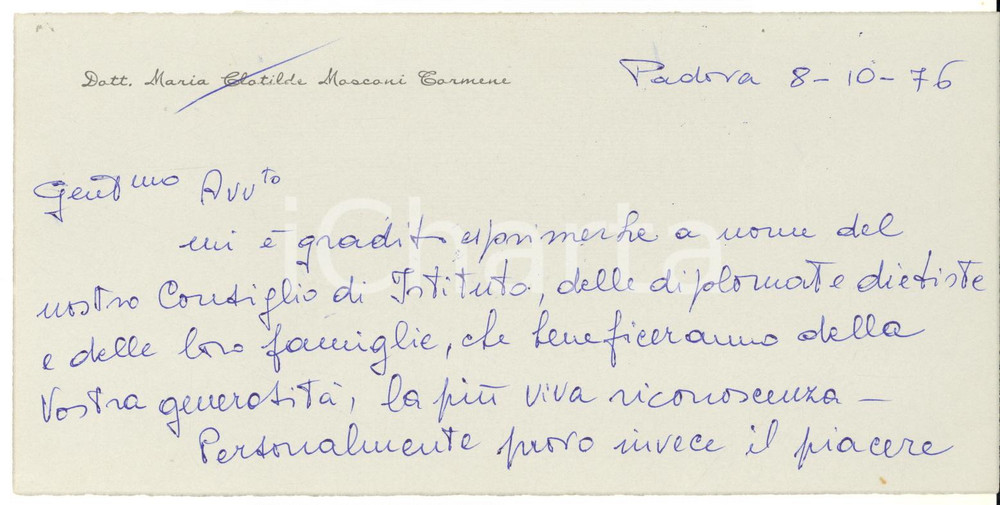 Dott. Maria Clotilde Mosconi Tormene
Padova 8-10-76
Gent.mo Avv.to
mi è gradito esprimerLe a nome del
nostro Consiglio di Istituto, delle diplomate dietiste
e delle loro famiglie, che beneficeranno della
Vostra generosità, la più viva riconoscenza —
Personalmente provo invece il piacere
iCharta